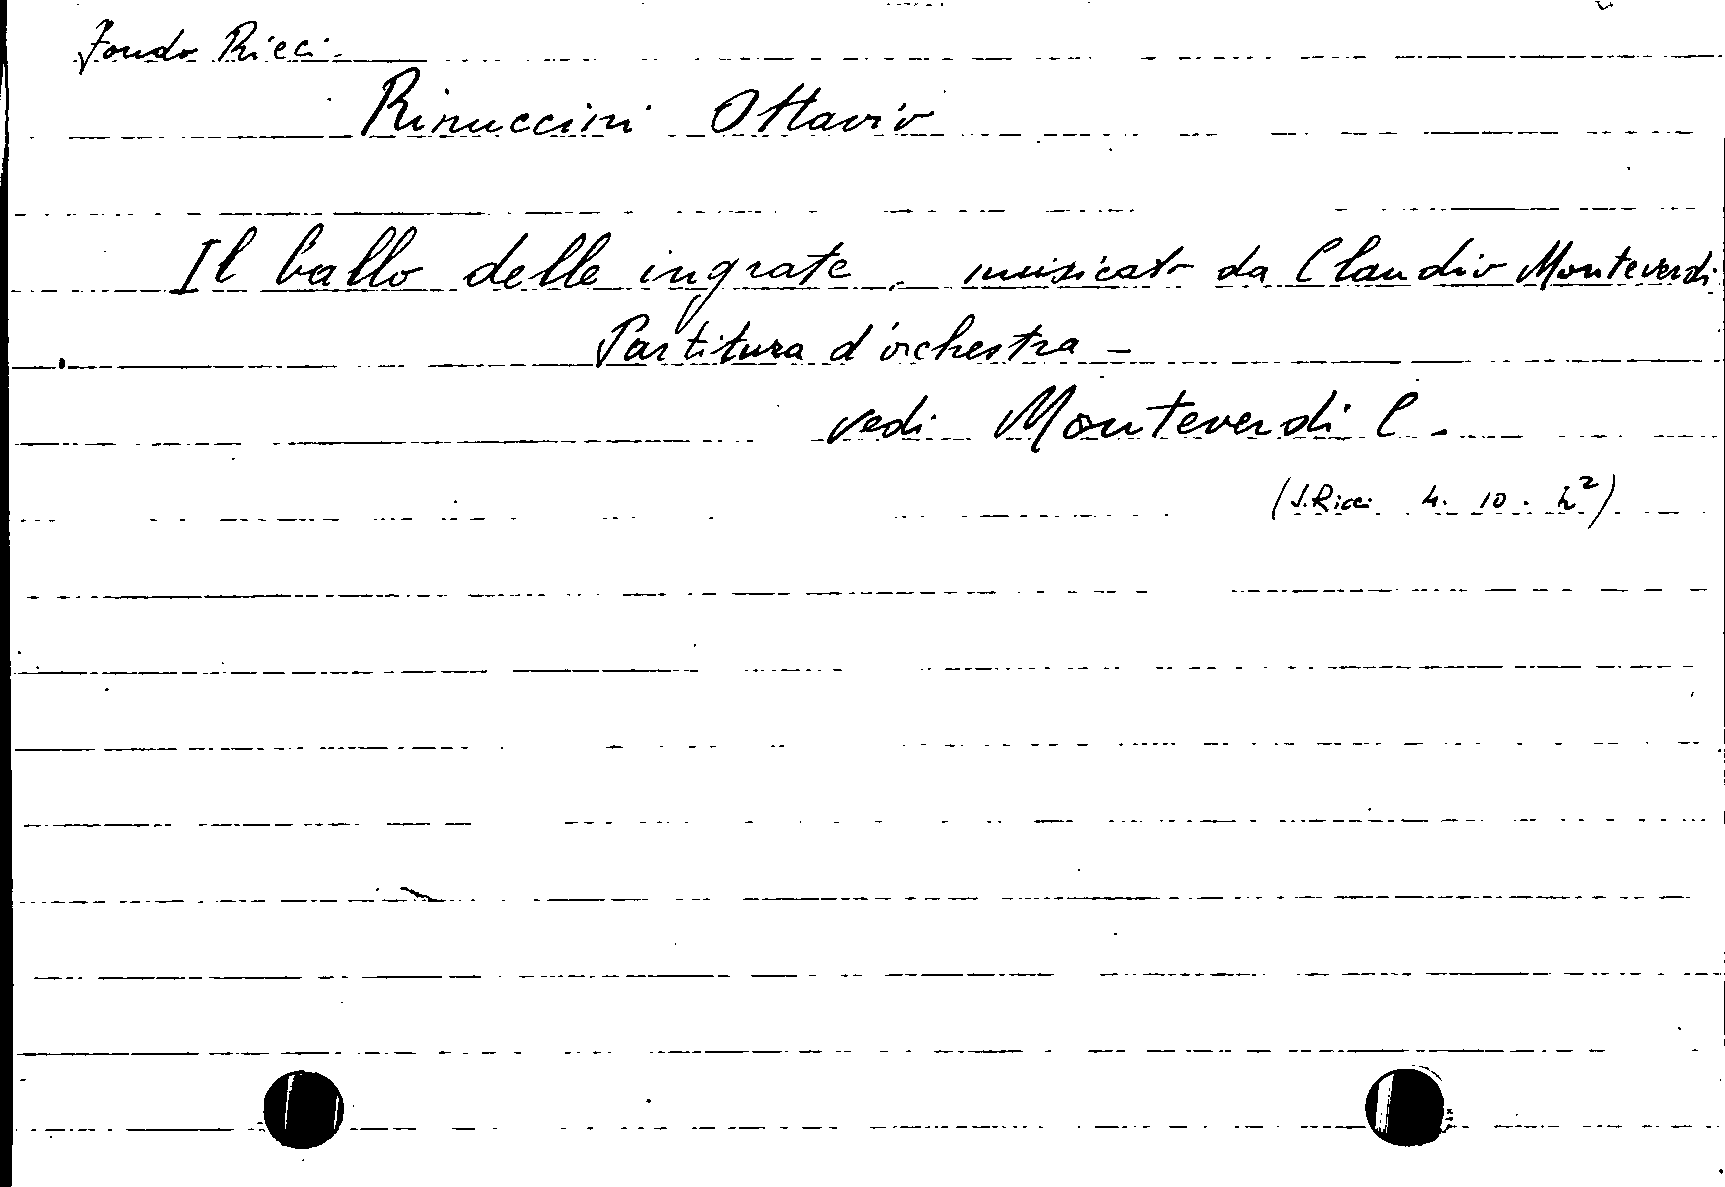 Fondo Ricci -
Rinuccini Ottavio
Il ballo delle ingrate, musicato da Claudio Monteverdi
Partitura d'orchestra -
vedi Monteverdi C.
(F. Ricci 4. 10. h²)